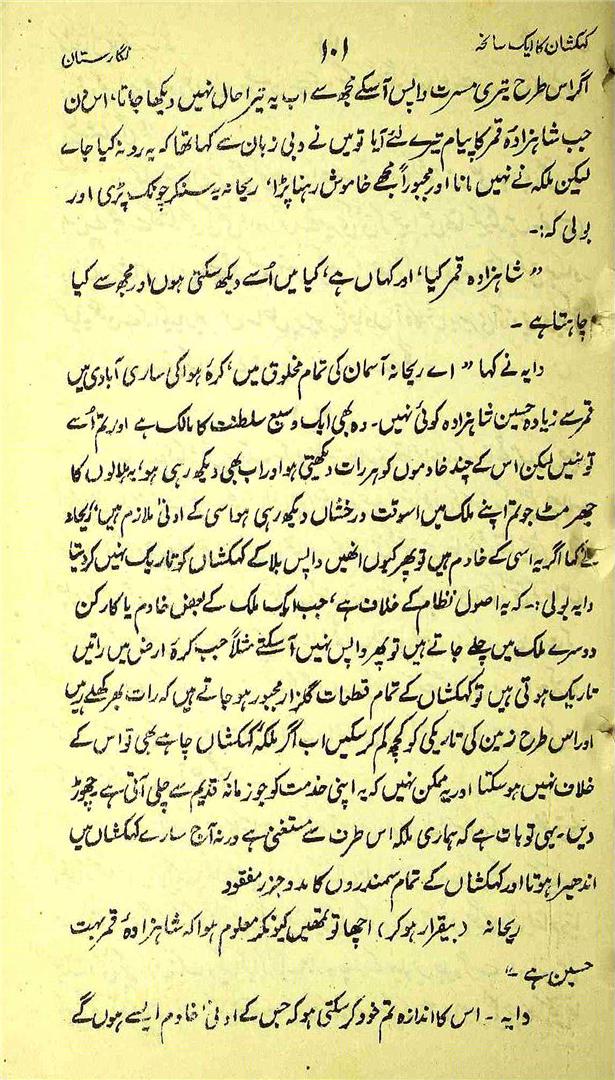 کہکشاں کا ایک سانحہ
۱۰۱
نگارستان
اگر اس طرح تیری مسرت واپس آسکے مجھ سے اب یہ تیرا حال نہیں دیکھا جاتا، اس دن
جب شاہزادہ قمر کا پیام تیرے لئے آیا تو میں نے دبی زبان سے کہا تھا کہ یہ رد نہ کیا جائے
لیکن ملکہ نے نہیں مانا اور مجبوراً مجھے خاموش رہنا پڑا، ریحانہ یہ سنکر چونک پڑی اور
بولی کہ:۔
”شاہزادہ قمر کیا، اور کہاں ہے، کیا میں اُسے دیکھ سکتی ہوں اور مجھ سے کیا
چاہتا ہے۔
دایہ نے کہا ”اے ریحانہ آسمان کی تمام مخلوق میں، کرۂ ہوا کی ساری آبادی میں
قمر سے زیادہ حسین شاہزادہ کوئی نہیں۔ وہ بھی ایک وسیع سلطنت کا مالک ہے اور تم اُسے
تو نہیں لیکن اس کے چند خادموں کو ہر رات دیکھتی ہو اور اب بھی دیکھ رہی ہو، یہ ہلالوں کا
جھرمٹ جو تم اپنے ملک میں اسوقت درخشاں دیکھ رہی ہو اسی کے ادنیٰ ملازم ہیں، ریحانہ
نے کہا اگر یہ اسی کے خادم ہیں تو پھر کیوں انھیں واپس بلا کے کہکشاں کو تاریک نہیں کر دیتا
دایہ بولی:۔ کہ یہ اصول نظام کے خلاف ہے، جب ایک ملک کے بعض خادم یا کارکن
دوسرے ملک میں چلے جاتے ہیں تو پھر واپس نہیں آسکتے مثلاً جب کرۂ ارض میں راتیں
تاریک ہوتی ہیں تو کہکشاں کے تمام قطعات گلزار مجبور ہو جاتے ہیں کہ رات بھر کھلے رہیں
اور اس طرح زمین کی تاریکی کو کچھ کم کر سکیں اب اگر ملکۂ کہکشاں چاہے بھی تو اس کے
خلاف نہیں ہو سکتا اور یہ ممکن نہیں کہ یہ اپنی خدمت کو جو زمانۂ قدیم سے چلی آتی ہے چھوڑ
دیں۔ یہی تو بات ہے کہ ہماری ملکہ اس طرف سے مستغنی ہے ورنہ آج سارے کہکشاں میں
اندھیرا ہوتا اور کہکشاں کے تمام سمندروں کا مدوجزر مفقود
ریحانہ (بیقرار ہو کر) اچھا تو تمھیں کیونکر معلوم ہوا کہ شاہزادۂ قمر بہت
حسین ہے۔“
دایہ۔ اس کا اندازہ تم خود کر سکتی ہو کہ جس کے ادنیٰ خادم ایسے ہوں گے